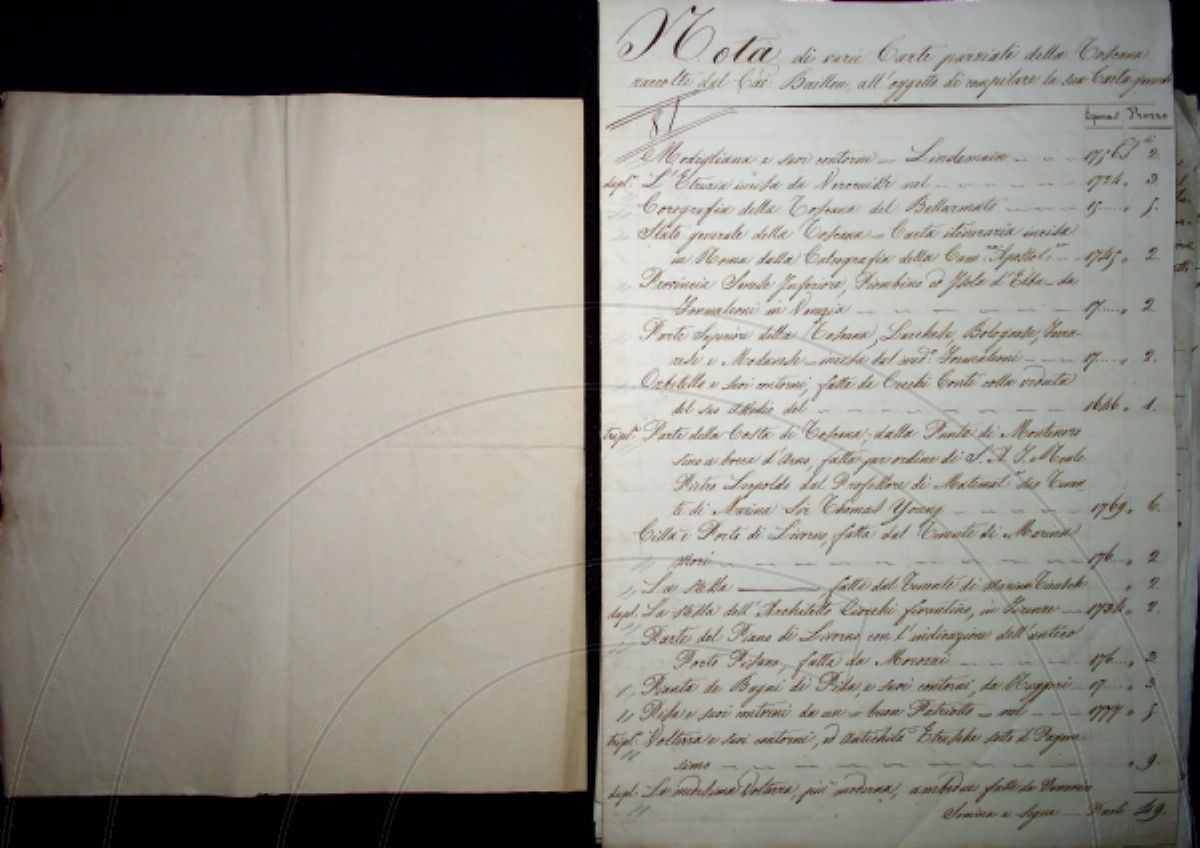 Nota di varie Carte parziali della Toscana
raccolte dal Cav. Baillou, all'oggetto di compilare la sua Carta generale
Epoca Prezzo
81
Modigliana e suoi contorni = Lindemain 1756 2.
dupl. L'Etruria incisa da nel 1724 3.
Corografia della Toscana del Bellarmato 15.... 5.
Stato generale della Toscana = Carta itineraria incisa
in Roma dalla Calcografia della Cam. Apostol. 1745 2.
Provincia Senese Inferiore, Piombino ed Isola d'Elba = da
Formaleoni in Venezia 17.... 2
Parte Superiore della Toscana, Lucchese, Bolognese, Ferra-
rese e Modanese = incisa dal med.º Formaleoni 17.... 2.
Orbetello e suoi contorni, fatta da Cecchi Conti colla veduta
del suo Assedio del 1646 1.
tripl. Parte della Costa di Toscana, dalla Punta di Montenero
sino a bocca d'Arno, fatta per ordine di S. A. I. Reale
Pietro Leopoldo dal Professore di Matemat. del Tenen-
te di Marina Sir Thomas Young 1769 6.
Città e Porto di Livorno, fatta dal Tenente di Marina
176.... 2
La stessa, fatta dal Tenente di Marina 2.
dupl. La stessa dell'Architetto Ciocchi fiorentino, in Firenze 2.
Parte del Piano di Livorno con l'indicazione dell'antico
Porto Pisano, fatta da Morozzi 176.... 3.
Pianta de Bagni di Pisa, e suoi contorni, da Ruggeri 17.... 3
Pisa e suoi contorni da un = buon Patriotto = nel 1777 5
tripl. Volterra e suoi contorni, ed Antichità Etrusche
9.
dupl. La medesima Volterra, più moderna, ambedue fatte da
Somma e segue Paoli 49.